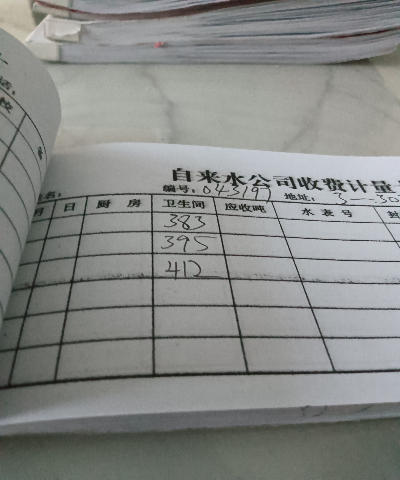 自来水公司收费计量
名： 编号：043197 地址：3--30
月 日 厨房 卫生间 应收吨 水表号
383
395
412